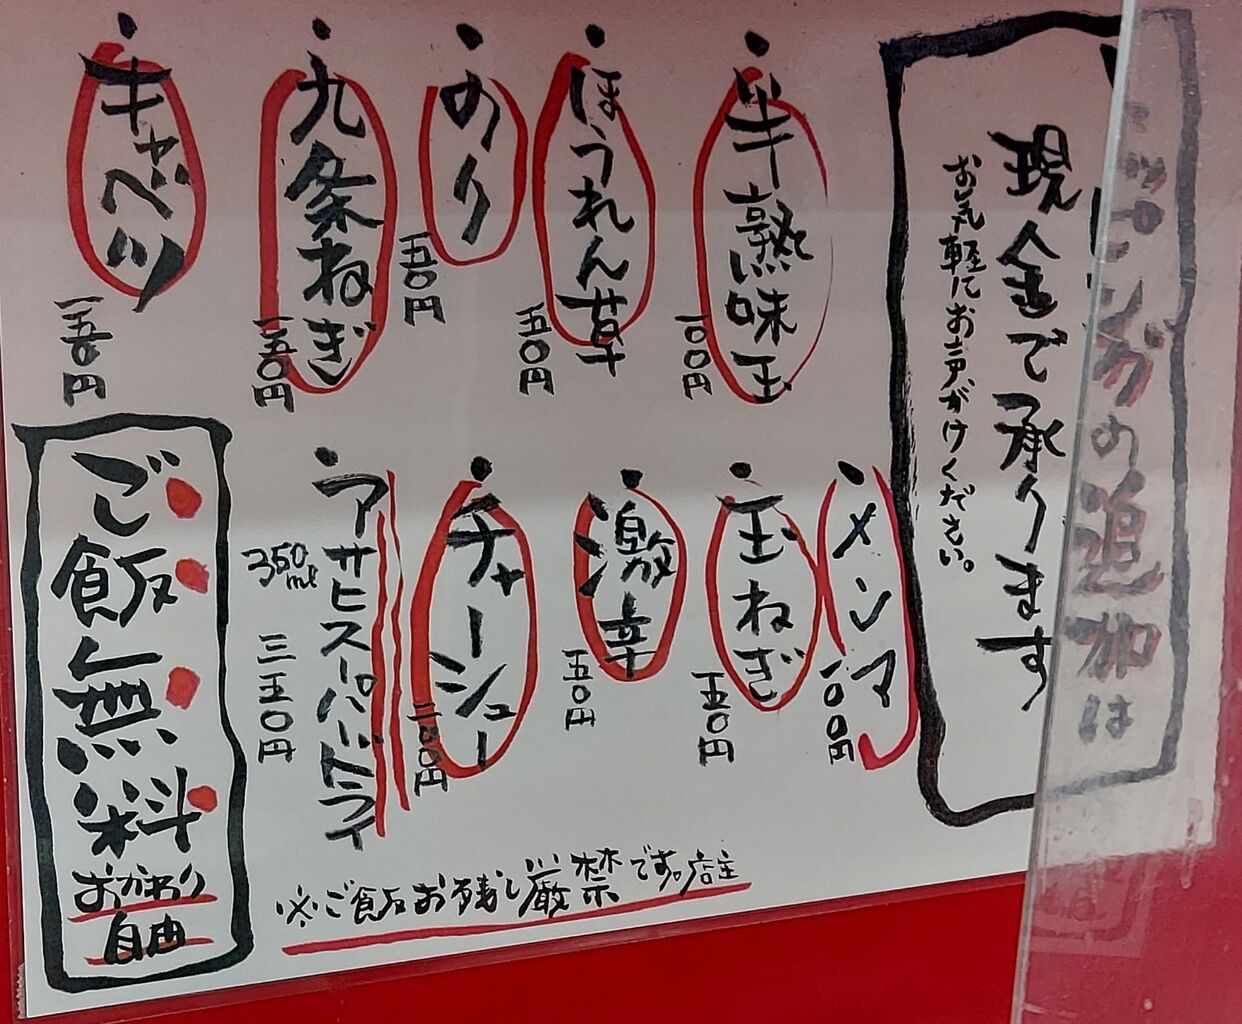 トッピングの追加は
現金で承ります
お気軽にお声がけください。
半熟味玉
一〇〇円
ほうれん草
一五〇円
のり
一五〇円
九条ねぎ
一五〇円
キャベツ
一五〇円
メンマ
一〇〇円
玉ねぎ
一五〇円
激辛
五〇円
チャーシュー
二〇〇円
アサヒスーパードライ
350ml
三五〇円
ご飯無料
おかわり
自由
※ご飯お残し厳禁です。店主